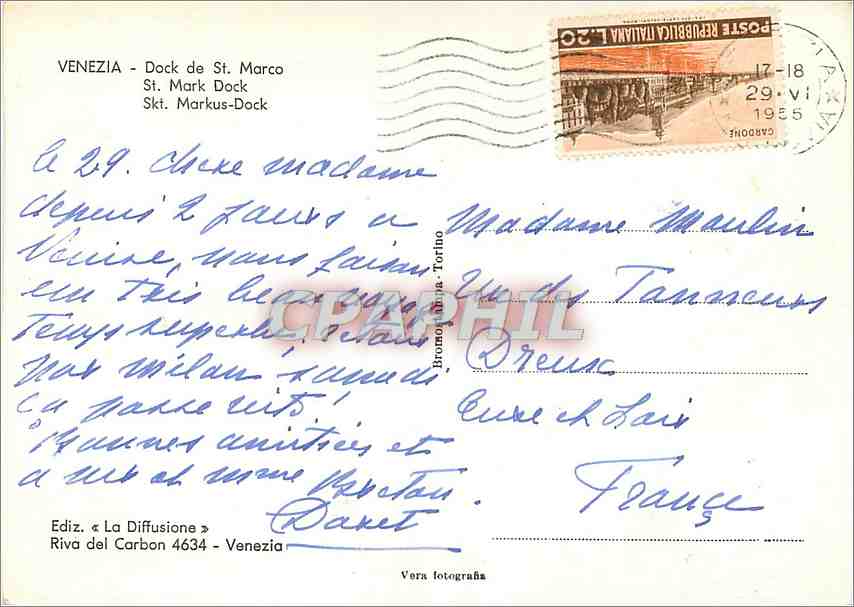 VENEZIA - Dock de St. Marco
St. Mark Dock
Skt. Markus-Dock
POSTE REPUBBLICA ITALIANA L.20
CARDONE
17-18
29·VI
1955
le 29. chere madame
depuis 2 jours a
Venise, nous faisons
un très beau voyage
temps superbe, retour
par milan samedi
ça passe vite!
Bonnes amitiés et
a mr et mme Breton.
Daret
Madame Moulin
des Tanneurs
Dreux
Eure et Loir
France
Bromostampa - Torino
CPAPHIL
Ediz. « La Diffusione »
Riva del Carbon 4634 - Venezia
Vera fotografia